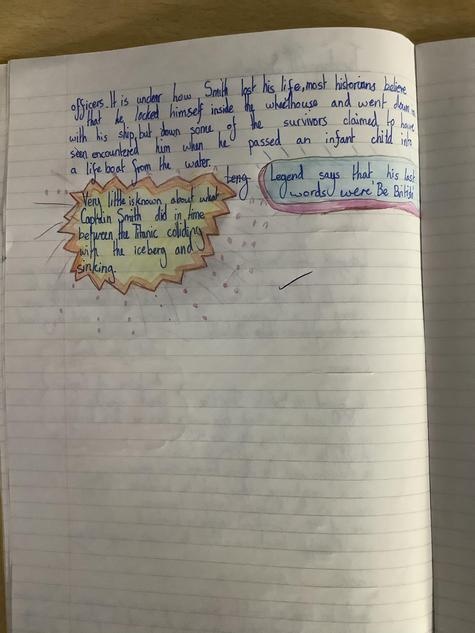 officers. It is unclear how Smith lost his life, most historians believe
that he locked himself inside the wheelhouse and went down
with his ship, but down some of the survivors claimed to have
seen encountered him when he passed an infant child into
a life boat from the water.
Leng
Legend says that his last
words were 'Be British
Very little is known about what
Captain Smith did in time
between the Titanic coliding
with the iceberg and
sinking.